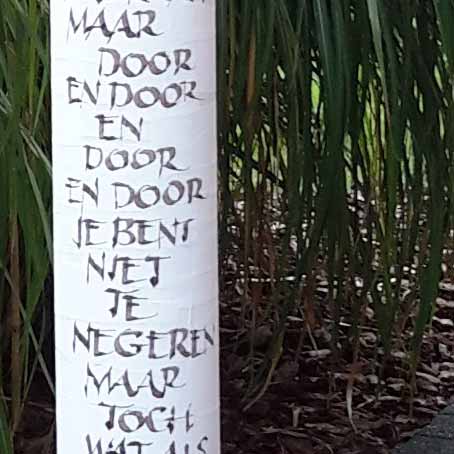 MAAR
DOOR
EN DOOR
EN
DOOR
EN DOOR
JE BENT
NIET
TE
NEGEREN
MAAR
TOCH
WAT ALS